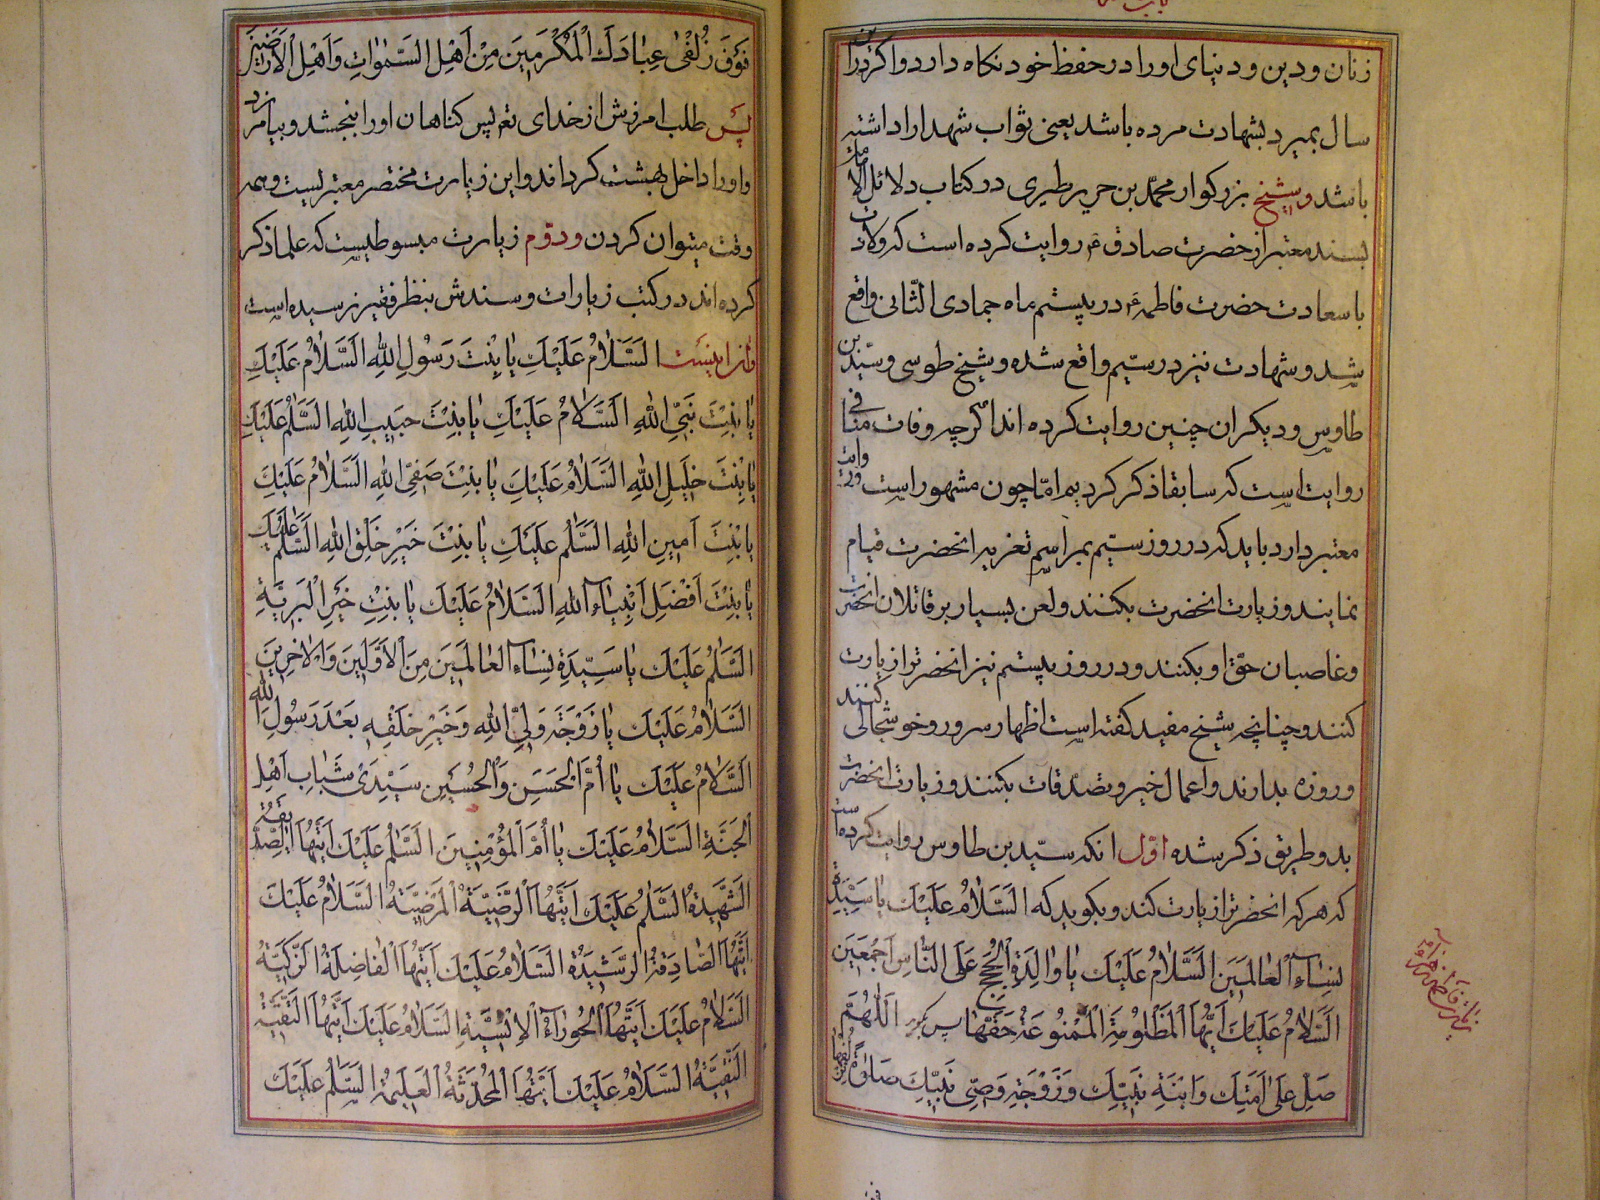 زنان و دین و دنیای او را در حفظ خود نکاه دارد و اکر در آن
سال بمیرد بشهادت مرده باشد یعنی ثواب شهدا را داشته
باشد و شیخ بزرکوار محمّد بن جریر طبری در کتاب دلائل الامامه
بسند معتبر از حضرت صادق ع روایت کرده است که ولادت
با سعادت حضرت فاطمه ع در بیستم ماه جمادی الثانی واقع
شد و شهادت نیز در سیّم واقع شده و شیخ طوسی و سیّد بن
طاوس و دیکران چنین روایت کرده اند اکرچه وفات منافی
روایت است که سابقا ذکر کردیم امّا چون مشهور است و روایت
معتبر دارد باید که در روز سیّم بمراسم تعزیه انحضرت قیام
نمایند و زیارت انحضرت بکنند و لعن بسیار بر قاتلان انحضرت
و غاصبان حقّ او بکنند و در روز بیستم نیز انحضرترا زیارت
کنند و چنانچه شیخ مفید کفته است اظهار سرور و خوشحالی کنند
و روزه بدارند و اعمال خیر و تصدّقات بکنند و زیارت انحضرت
بدو طریق ذکر شده اوّل انکه سیّد بن طاوس روایت کرده است
که هر که انحضرترا زیارت کند و بکوید که اَلسَّلامُ عَلَیْكِ یا سَیِّدَةِ
نِسٰاءِ الْعالَمینَ اَلسَّلامُ عَلَیْكِ یا والِدَةِ الْحُجَجِ عَلَی النّاسِ اَجْمَعینَ
اَلسَّلامُ عَلَیْكِ اَیَّتُهَا الْمَظْلُومَةِ الْمَمْنُوعَةِ حَقَّهٰا پس بکوید اَللّهُمَّ
صَلِّ عَلٰی اَمَتِكَ وَابْنَةِ نَبِیِّكَ وَزَوْجَةِ وَصِیِّ نَبِیِّكَ صَلٰوةً تُزْلِفُهٰا
زیارت فاطمه زهرا
فوق
فَوْقَ زُلْفٰی عِبادِكَ الْمُکْرَمینَ مِنْ اَهْلِ السَّمٰوٰاتِ وَاَهْلِ الْاَرَضینَ
پس طلب امرزش از خدای تع پس کناهان او را ببخشد و بیامرزد
و او را داخل بهشت کرداند و این زیارت مختصر معتبریست و همه
وقت میتوان کردن و دوّم زیارت مبسوطیست که علما ذکر
کرده اند در کتب زیارات و سندش بنظر فقیر نرسیده است
وان اینست اَلسَّلامُ عَلَیْكِ یا بِنْتَ رَسُولِ اللهِ اَلسَّلامُ عَلَیْكِ
یا بِنْتَ نَبِیِّ اللهِ اَلسَّلامُ عَلَیْكِ یا بِنْتَ حَبیبِ اللهِ اَلسَّلٰمُ عَلَیْكِ
یا بِنْتَ خَلیلِ اللهِ اَلسَّلامُ عَلَیْكِ یا بِنْتَ صَفِیِّ اللهِ اَلسَّلامُ عَلَیْكِ
یا بِنْتَ اَمینِ اللهِ اَلسَّلٰمُ عَلَیْكِ یا بِنْتَ خَیْرِ خَلْقِ اللهِ اَلسَّلٰمُ عَلَیْكِ
یا بِنْتَ اَفْضَلِ اَنْبِیٰاءِ اللهِ اَلسَّلامُ عَلَیْكِ یا بِنْتِ خَیْرِ الْبَرِیَّةِ
اَلسَّلٰمُ عَلَیْكِ یا سَیِّدَةِ نِسٰاءِ الْعالَمینَ مِنَ الْاَوَّلینَ وَالْاٰخِرینَ
اَلسَّلامُ عَلَیْكِ یا زَوْجَةَ وَلِیِّ اللهِ وَخَیْرِ خَلْقِهِ بَعْدَ رَسُولِ اللهِ
اَلسَّلامُ عَلَیْكِ یا اُمَّ الْحَسَنِ وَالْحُسَیْنِ سَیِّدَیْ شَبابِ اَهْلِ
الْجَنَّةِ اَلسَّلامُ عَلَیْكِ یا اُمَّ الْمُؤْمِنینَ اَلسَّلٰمُ عَلَیْكِ اَیَّتُهَا الصِّدّیقَةُ
الشَّهیدَةُ اَلسَّلٰمُ عَلَیْكِ اَیَّتُهَا الرَّضِیَّةُ الْمَرْضِیَّةُ اَلسَّلامُ عَلَیْكِ
اَیَّتُهَا الصّادِقَةُ الرَّشیدَةُ اَلسَّلامُ عَلَیْكِ اَیَّتُهَا الْفاضِلَةُ الزَّکِیَّةُ
اَلسَّلامُ عَلَیْكِ اَیَّتُهَا الْحَوْرٰاءُ الْاِنْسِیَّةُ اَلسَّلامُ عَلَیْكِ اَیَّتُهَا التَّقِیَّةُ
النَّقِیَّةُ اَلسَّلامُ عَلَیْكِ اَیَّتُهَا الْمُحَدَّثَةُ الْعَلیمَةُ اَلسَّلٰمُ عَلَیْكِ